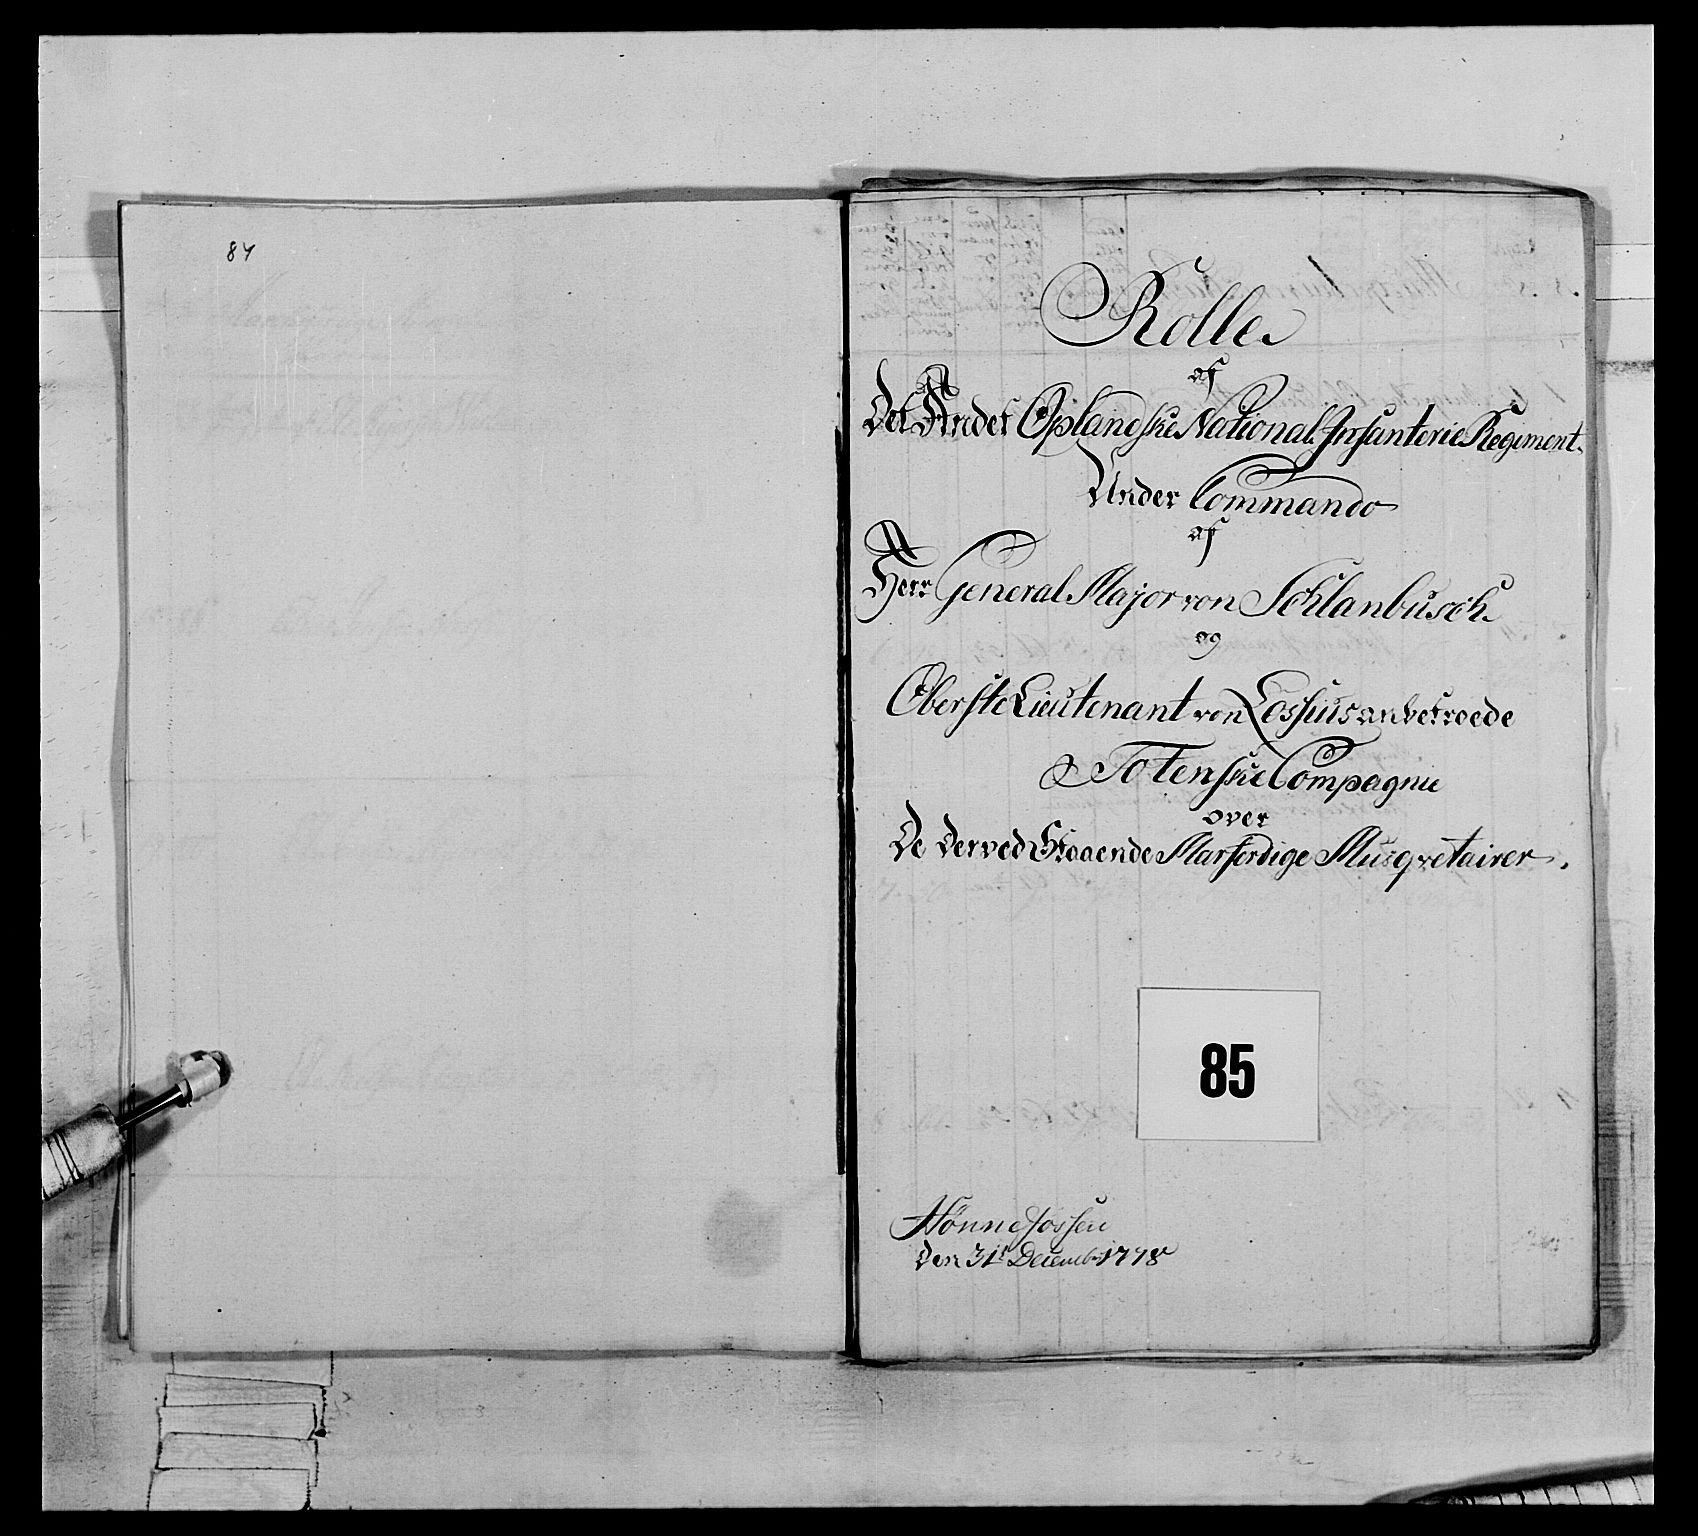 84
Rolle
af
Det Andet Oplandske National Infanterie Regiment
Under Commando
af
Herr General Major von Schlanbusch
og
Oberste Lieutenant von Lossius anbetroede
Totenske Compagnie
over
De derved Staaende Marferdige Musqvetairer.
85
Hönne fossen
Den 31t Decemb 1778